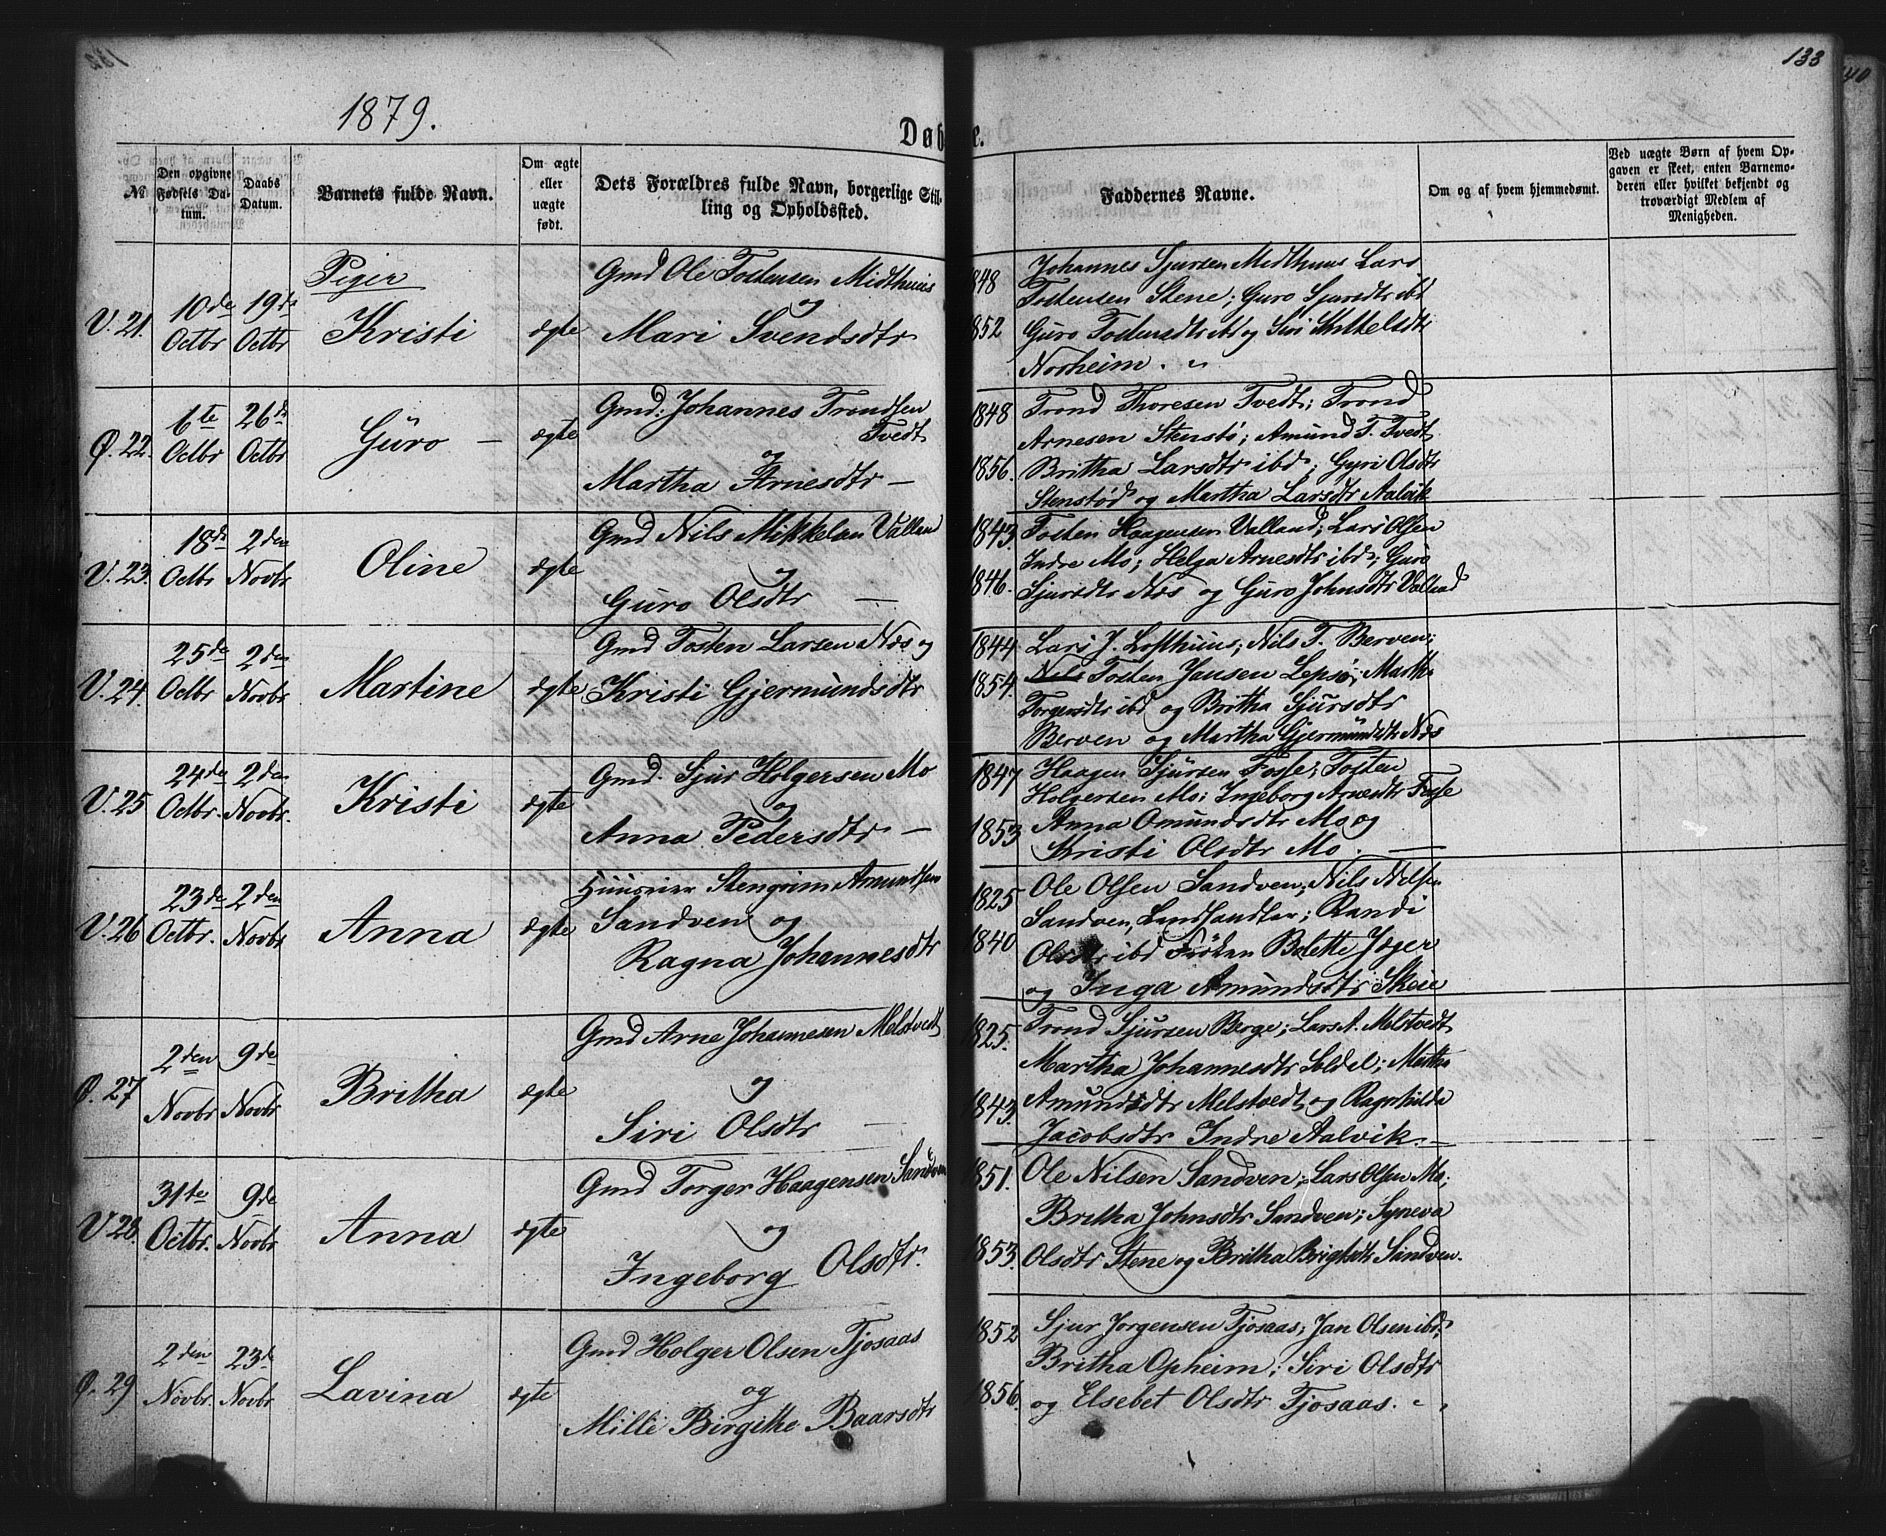 133
1879.
Døbte.
№
Den opgivne Fødsels Datum.
Daabs Datum.
Barnets fulde Navn.
Om ægte eller uægte født.
Dets Forældres fulde Navn, borgerlige Stilling og Opholdssted.
Faddernes Navne.
Om og af hvem hjemmedøbt.
Ved uægte Børn af hvem Opgaven er skeet, enten Barnemoderen eller hvilket bekjendt og troværdigt Medlem af Menigheden.
Piger
V. 21. 10de Octbr 19de Octbr Kristi ægte
Gmd Ole Tostensen Midthuus
og
Mari Svendsdtr
1848
1852
Johannes Sjursen Midthuus Lars
Tostensen Stene; Guro Sjursdtr ibd
Guro Tostensdtr og Siri
Norheim.
Ø. 22. 6te Octbr 26de Octbr Guro ægte
Gmd. Johannes Trondsen
Tvedt
og
Martha Arnesdtr
1848
1856.
Trond Thoresen Tvedt; Trond
Arnesen Stenstø; Amund T. Tvedt
Britha Larsdtr ibd; Gyri Olsdtr
Stenstø og Martha Larsdtr Aalvik
V. 23. 18de Octbr 2den Novbr Oline ægte
Gmd Nils Mikkelsen Valland
og
Guro Olsdtr
1843.
1846.
Tosten Haagensen Valland; Lars Olsen
Indre Mo; Helga Arnesdtr ibd; Guro
Sjursdtr Næs og Guro Johnsdtr Valland
V. 24. 25de Octbr 2den Novbr Martine ægte
Gmd Tosten Larsen Næs og
Kristi Gjermundsdtr
1844
1854.
Lars J. Lofthuus; Nils T. Berven;
Nils Tosten Jansen Lepsø; Martha
Torgersdtr ibd og Britha Sjursdtr
Berven og Martha Gjermundsdtr Næs
V. 25 24de Octbr. 2den Novbr. Kristi ægte
Gmd. Sjur Holgersen Mo
og
Anna Pedersdtr
1847
1853
Haagen Sjursen Fosse; Tosten
Holgersen Mo; Ingeborg Arnesdtr Fosse
Anna Omundsdtr Mo og
Kristi Olsdtr Mo.
V. 26 23de Octbr. 2den Novbr Anna ægte
Stengrim Amundsen
Sandven og
Ragna Johannesdtr
1825
1840
Ole Olsen Sandven; Nils Nilsen
Sandven, Landhandler; Randi
Olsdtr ibd Frøken Bolette Jæger
og Inga Amundsdtr Skeie
Ø. 27 2den Novbr 9de Novbr Britha ægte
Gmd Arne Johannesen Melstvedt
og
Siri Olsdtr
1825.
1843.
Trond Sjursen Berge; Lars A. Melstvedt
Martha Johannesdtr Soldal; Martha
Amundsdtr Melstvedt og Ragnhilda
Jacobsdtr Indre Aalvik.
V. 28. 31te Octbr. 9de Novbr Anna ægte
Gmd Torger Haagensen Sandven
og
Ingeborg Olsdtr.
1851.
1853.
Ole Nilsen Sandven; Lars Olsen Mo;
Britha Johnsdtr Sandven; Syneva
Olsdtr Stene og Britha Brigtsdtr Sandven.
Ø. 29 2den Novbr. 23de Novbr Lavina ægte
Gmd Holger Olsen Tjosaas
og
Mille Birgithe Baarsdtr
1852
1856.
Sjur Jorgensen Tjosaas; Jan Olsen ibd;
Britha Opheim; Siri Olsdtr
og Elsebet Olsdtr Tjosaas.